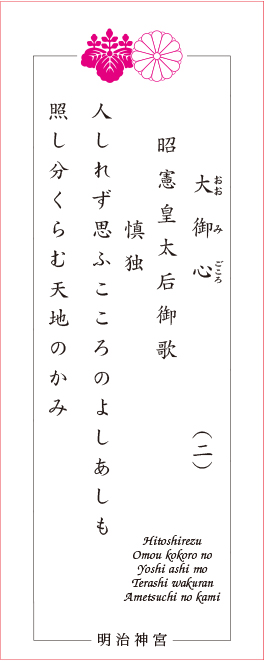 大御心
おお み ごころ
(二)
昭憲皇太后御歌
慎独
人しれず思ふこころのよしあしも
照し分くらむ天地のかみ
Hitoshirezu
Omou kokoro no
Yoshi ashi mo
Terashi wakuran
Ametsuchi no kami
明治神宮